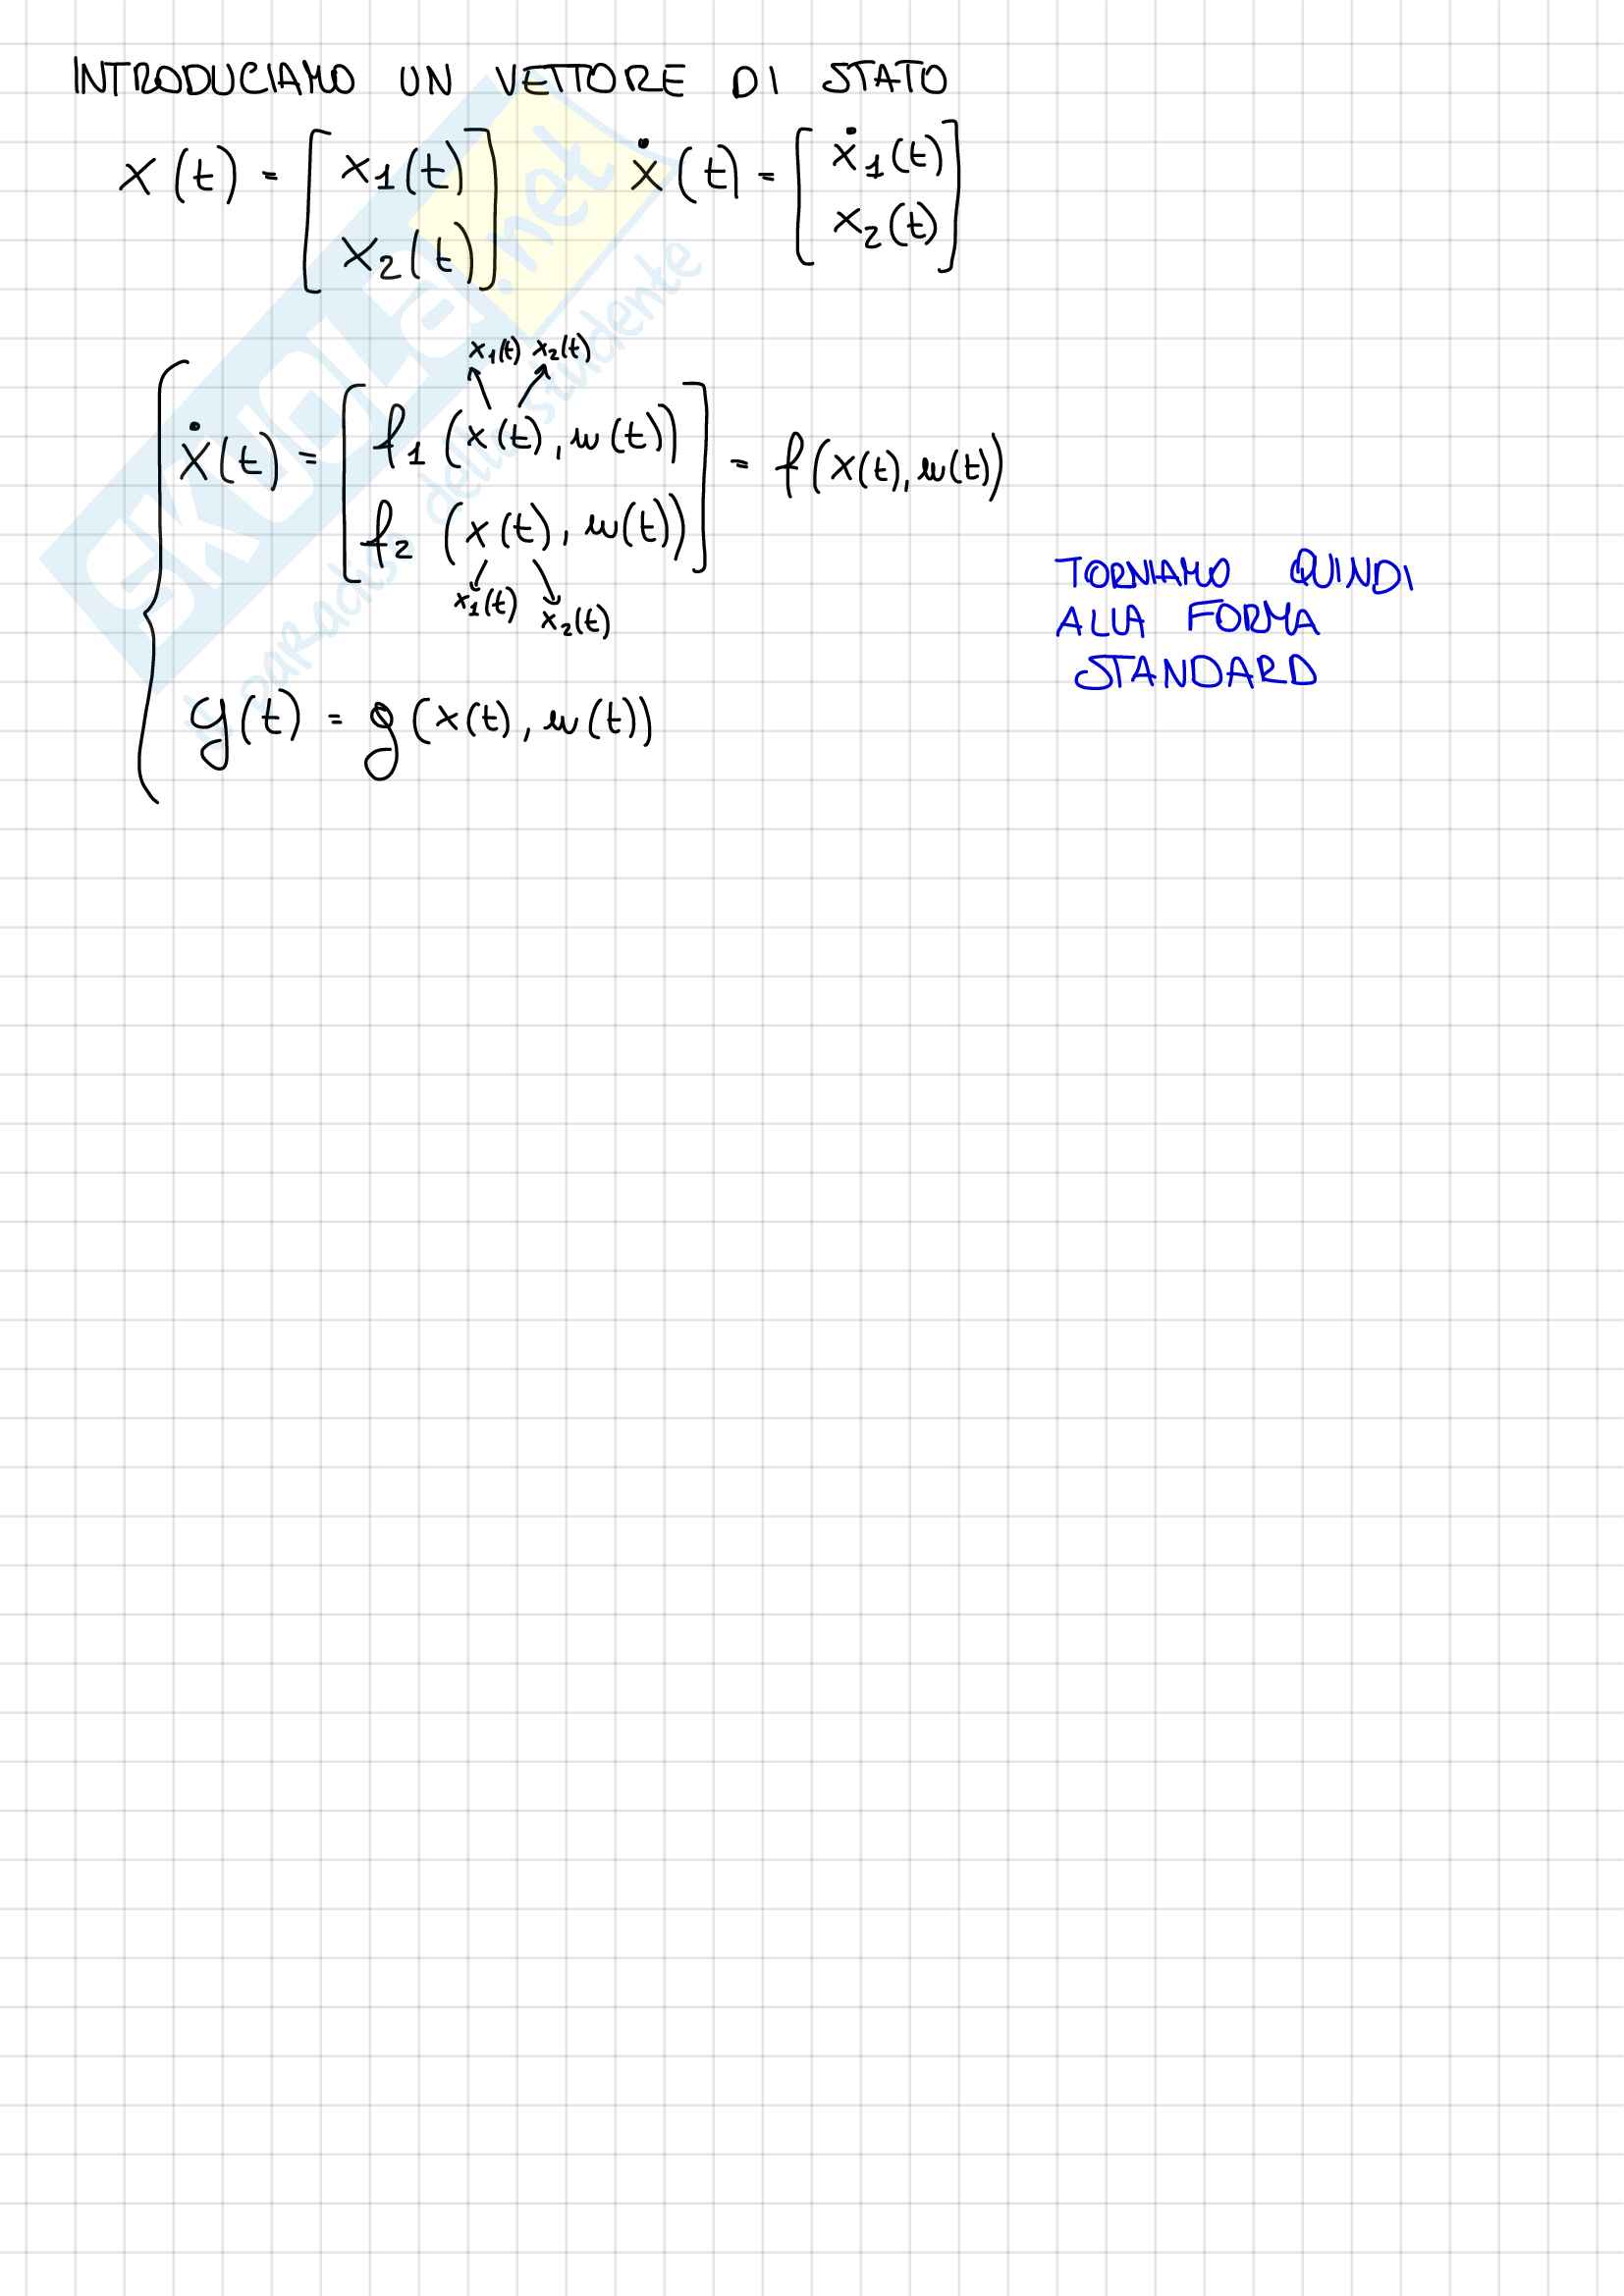 INTRODUCIAMO UN VETTORE DI STATO
x(t) = [ x1(t)   ẋ(t) = [ ẋ1(t)
x2(t) ]   x2(t) ]
x1(t) x2(t)
ẋ(t) = [ f1 (x(t), u(t))
f2 (x(t), u(t)) ] = f(x(t), u(t))
x1(t) x2(t)
y(t) = g(x(t), u(t))
TORNIAMO QUINDI
ALLA FORMA
STANDARD
SKUOLA.net
il paradiso dello studente